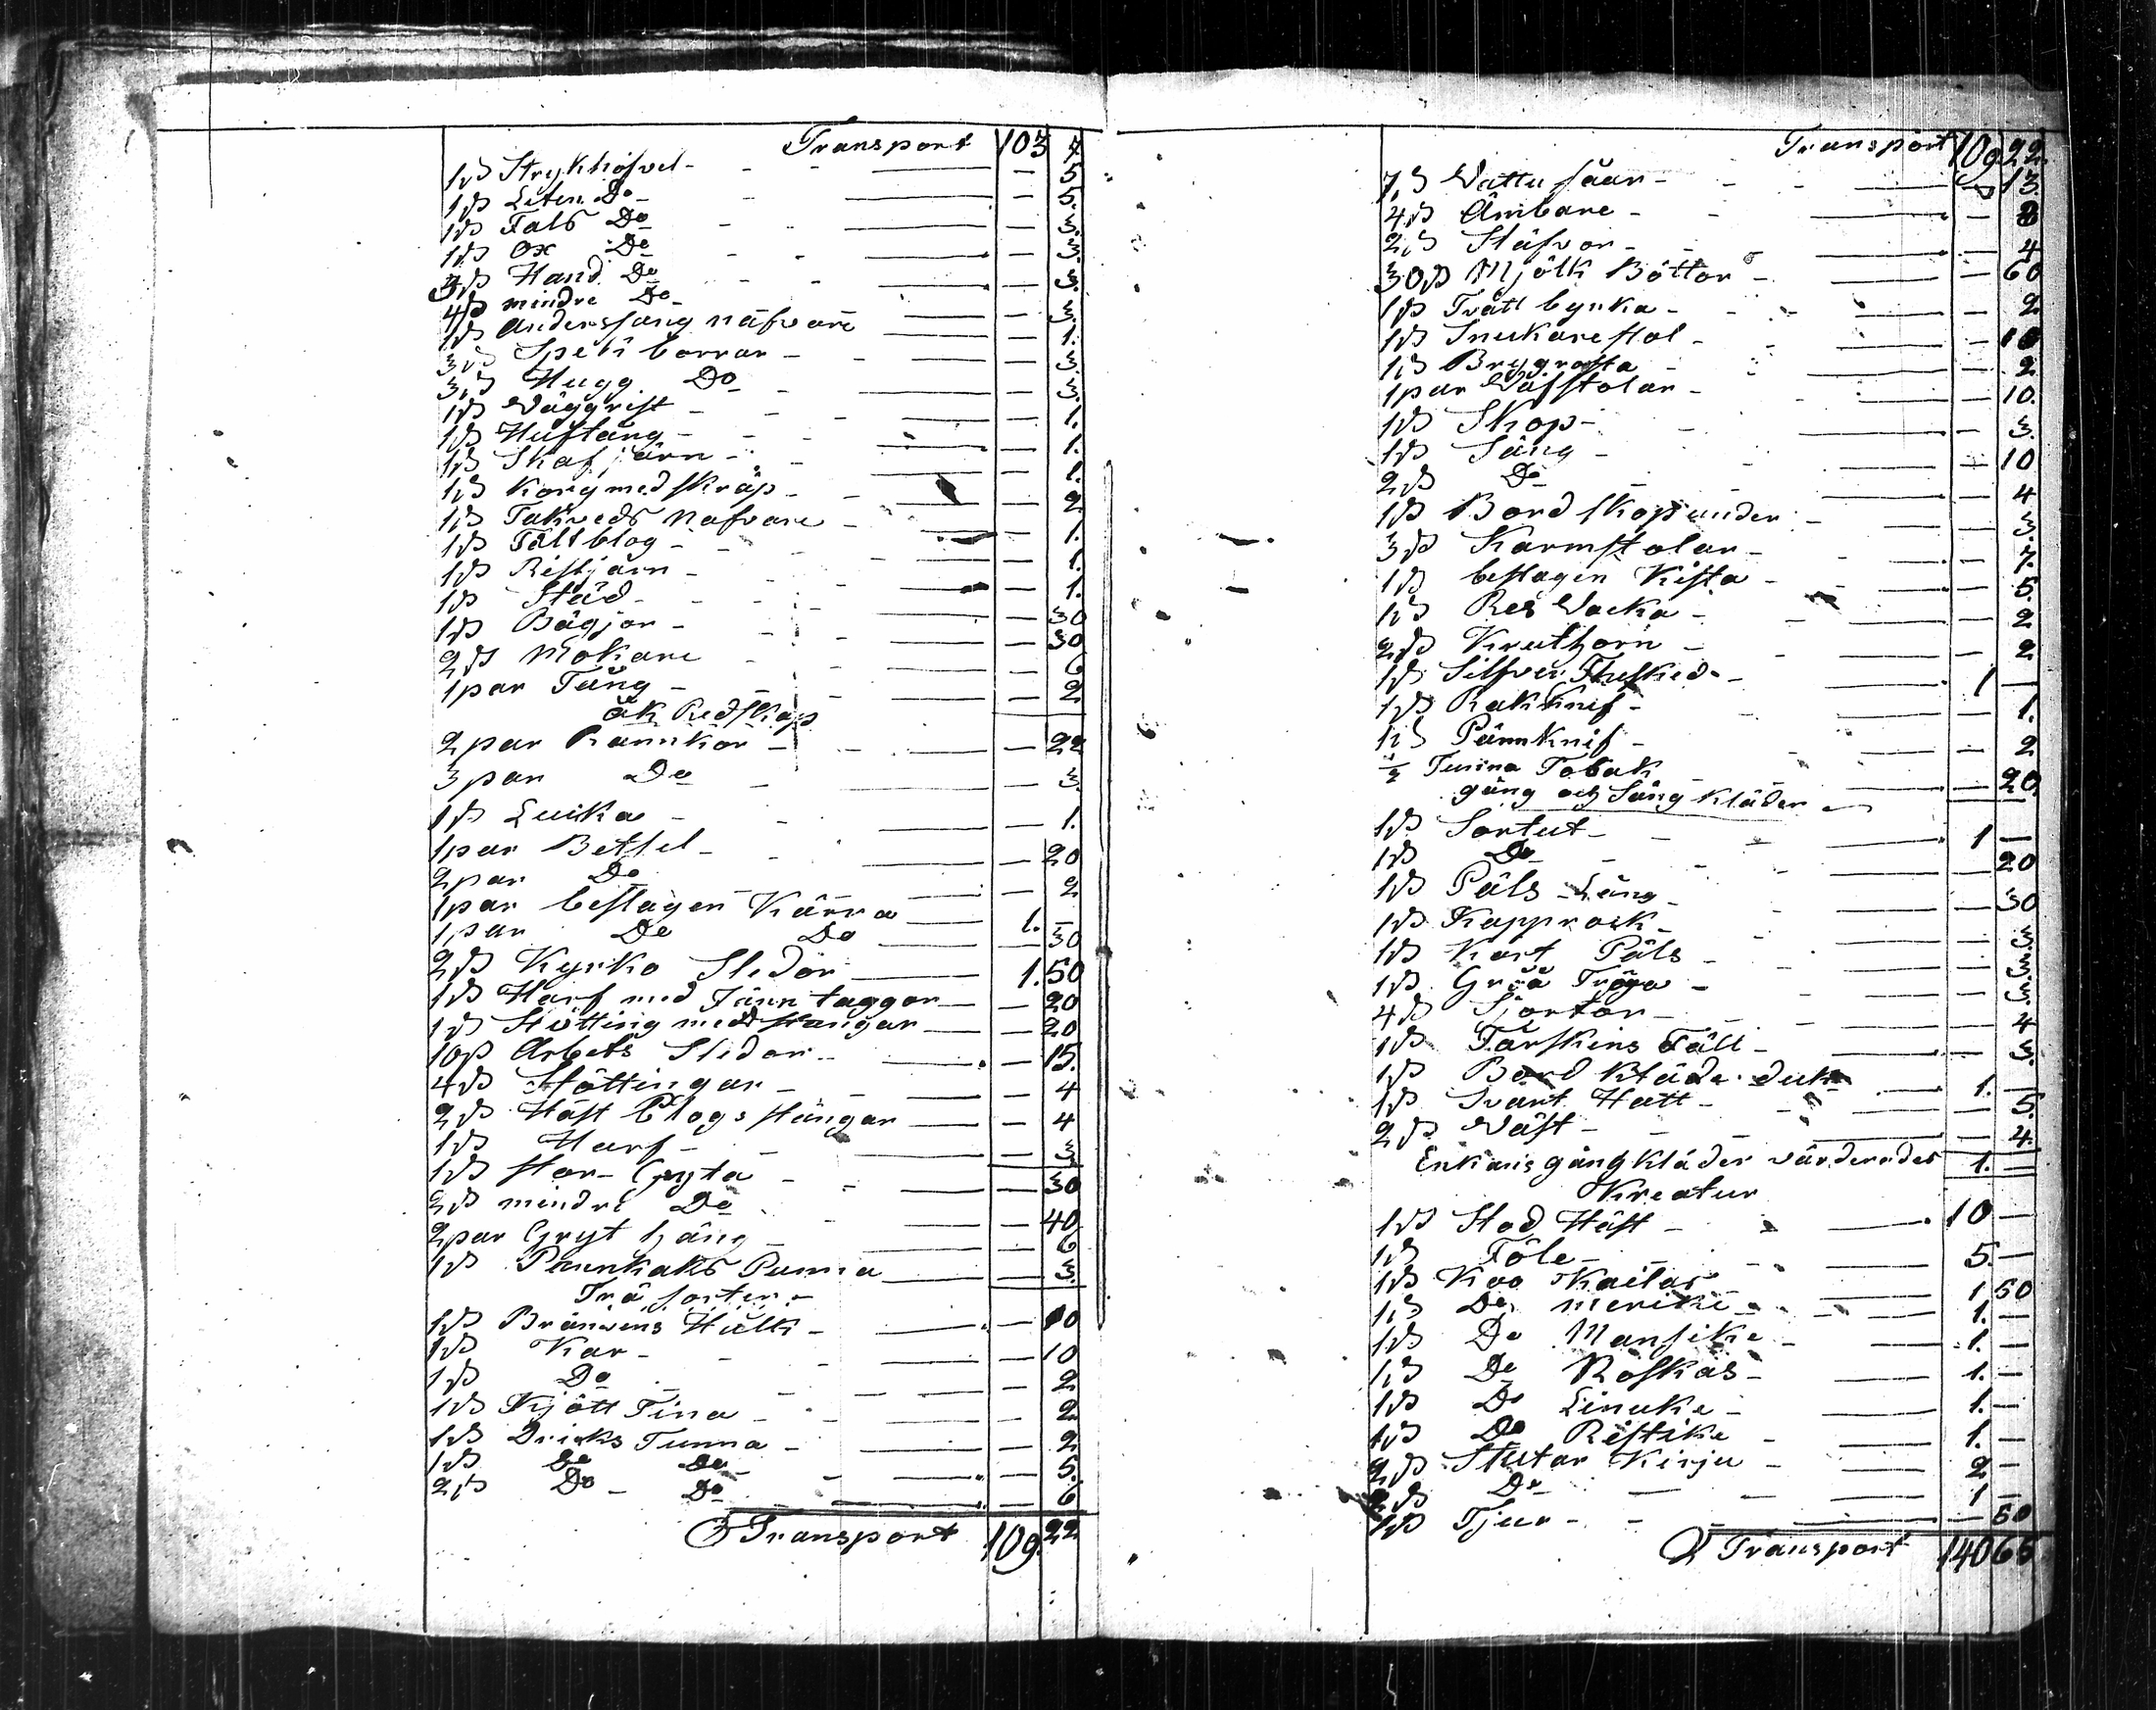 Transport 103 7.
1 st Strykhöfvel - - - — 5
1 st Liten Do - - — 5.
1 st Fals Do - - — 3.
1 st Ox Do - - — 3.
3 st Hand Do - - — 3.
4 st mindre Do - — 3.
1 st Andersfang näfvare — 1.
3 st Spetz borrar - - — 3
3 st Hugg Do - - — 3.
1 st Wäggrist - - - — 1.
1 st Huftång - - - — 1.
1 st Skafjärn - - — 1.
1 st Korg med skräp - - — 2
1 st Takveds Nafvare - — 1.
1 st Fältblog - - — 1.
1 st Ristjärn - - — 1.
1 st Städ - - - — 30
1 st Bägjor - - - — 30
2 st Mokare - - — 6
1 par Tång - - - — 2
åk Redskap
2 par Rannkor - - — 22
3 par Do — 3.
1 st Luika - - — 1.
1 par Bettsel - - — 20
2 par Do — 2
1 par beslagen Kärra — 1. —
1 par Do Do — 30
2 st Kyrko Sledor — 1.50
1 st Harf med Järn taggar — 20
1 st Stötting med stangar — 20
10 st Arbets Sledar - — 15.
4 st Stöttingar - - — 4
2 st Häst Plogs stängar — 4
1 st Harf - - — 3
1 st stor Gryta - - — 30
2 st mindre Do - — 40
2 par Gryt häng - — 6
1 st Pannkaks Panna — 3.
Trä sorter -
1 st Bränvins Hulk - — 10
1 st Kar - - - — 10
1 st Do - - — 2
1 st Kjött Tina - - — 2
1 st Dricks Tunna - — 2
1 st Do Do - — 5.
2 st Do - Do — 6
Transport 109. 22
Transport 109. 22.
7 st Vattu såar - - - — 13.
4 st Ämbare - - — 8
2 st Stäfvor - - — 4
30 st Mjölk Böttor - — 60
1 st Tvätt bynka - - — 2
1 st Snickare stol - - — 10
1 st Brygrosta - - — 2
1 par Wäfstolar - - — 10.
1 st Skop - - — 3.
1 st Säng - - — 10
2 st Do - - — 4
1 st Bord skop under - — 3.
3 st Karmstolar - - — 7.
1 st beslagen Kista - - — 5.
1 st Res Wacka - - — 2
2 st Kruthorn - - — 2
1 st Silfver Thesked - 1 —
1 st Rakknif - - — 1.
1 st Pännknif - - — 2
1/2 Tunna Tobak - — 20.
gång och Säng kläder
1 st Sortut - - 1 —
1 st Do - - — 20
1 st Päls Läng - - — 30
1 st Kapprock - - — 3.
1 st Kort Päls - - — 3.
1 st Gråa Tröja - - — 3.
4 st Sjortor - - — 4
1 st Fårskins Fäll - — 3.
1 st Bord kläde duk 1. —
1 st Svart Hatt - - — 5.
2 st Wäst - - — 4.
Enkans gång kläder värderades 1. —
Kreatur
1 st Stod Häst - - 10 —
1 st Föle - - 5. —
1 st Koo Kaitas - 1 50
1 st Do Merike - 1. —
1 st Do Mansike - 1. —
1 st Do Roskas - 1. —
1 st Do Linuke - 1. —
1 st Do Ristike - 1. —
2 st Stutar Kirju - 2 —
2 st Do — 1 —
1 st Tjur - - — 50
Transport 140 65